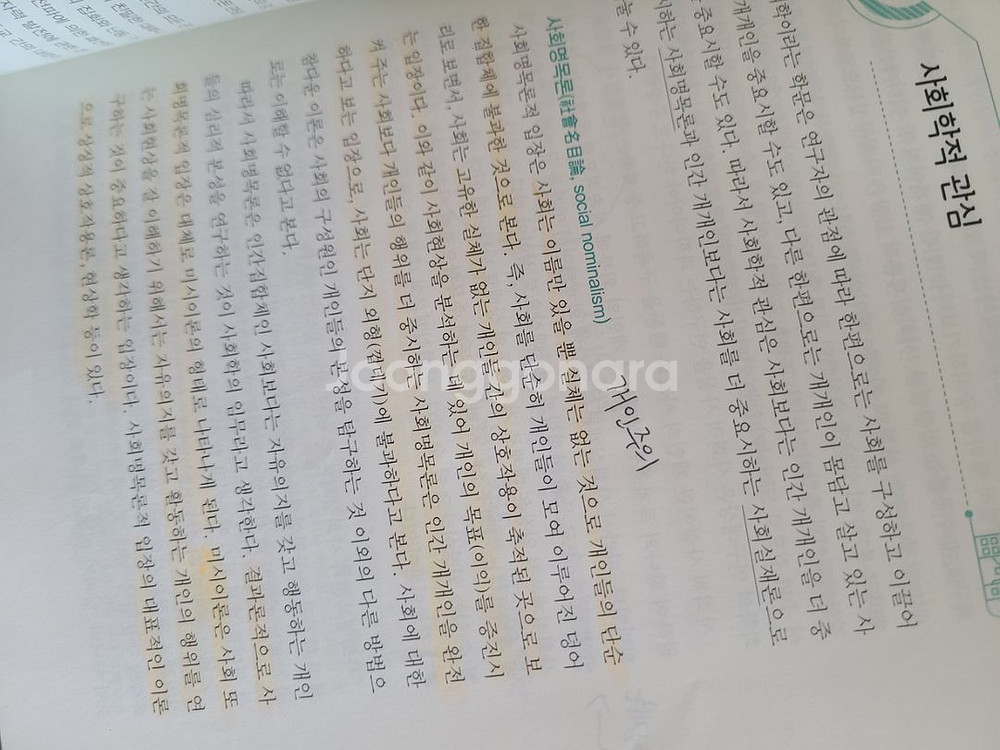 사회학적 관심
학이라는 학문은 연구자의 관점에 따라 한편으로는 사회를 구성하고 이끌어
개개인을 중요시할 수도 있고, 다른 한편으로는 개개인이 몸담고 살고 있는 사
중요시할 수도 있다. 따라서 사회학적 관심은 사회보다는 인간 개개인을 더 중
시하는 사회명목론과 인간 개개인보다는 사회를 더 중요시하는 사회실재론으로
눌 수 있다.
사회명목론(社會名目論, social nominalism)
개인주의
사회명목론적 입장은 사회는 이름만 있을 뿐 실체는 없는 것으로 개인들의 단순
한 집합체에 불과한 것으로 본다. 즉, 사회를 단순히 개인들이 모여 이루어진 덩어
리로 보면서, 사회는 고유한 실체가 없는 개인들 간의 상호작용이 축적된 곳으로 보
는 입장이다. 이와 같이 사회현상을 분석하는 데 있어 개인의 목표(이익)를 증진시
켜 주는 사회보다 개인들의 행위를 더 중시하는 사회명목론은 인간 개개인을 완전
하다고 보는 입장으로, 사회는 단지 외형(껍데기)에 불과하다고 본다. 사회에 대한
참다운 이론은 사회의 구성원인 개인들의 본성을 탐구하는 것 이외의 다른 방법으
로는 이해할 수 없다고 본다.
따라서 사회명목론은 인간집합체인 사회보다는 자유의지를 갖고 행동하는 개인
들의 심리적 본성을 연구하는 것이 사회학의 임무라고 생각한다. 결과론적으로 사
회명목론적 입장은 대체로 미시이론의 형태로 나타나게 된다. 미시이론은 사회 또
는 사회현상을 잘 이해하기 위해서는 자유의지를 갖고 활동하는 개인의 행위를 연
구하는 것이 중요하다고 생각하는 입장이다. 사회명목론적 입장의 대표적인 이론
으로 상징적 상호작용론, 현상학 등이 있다.
Joonggonara